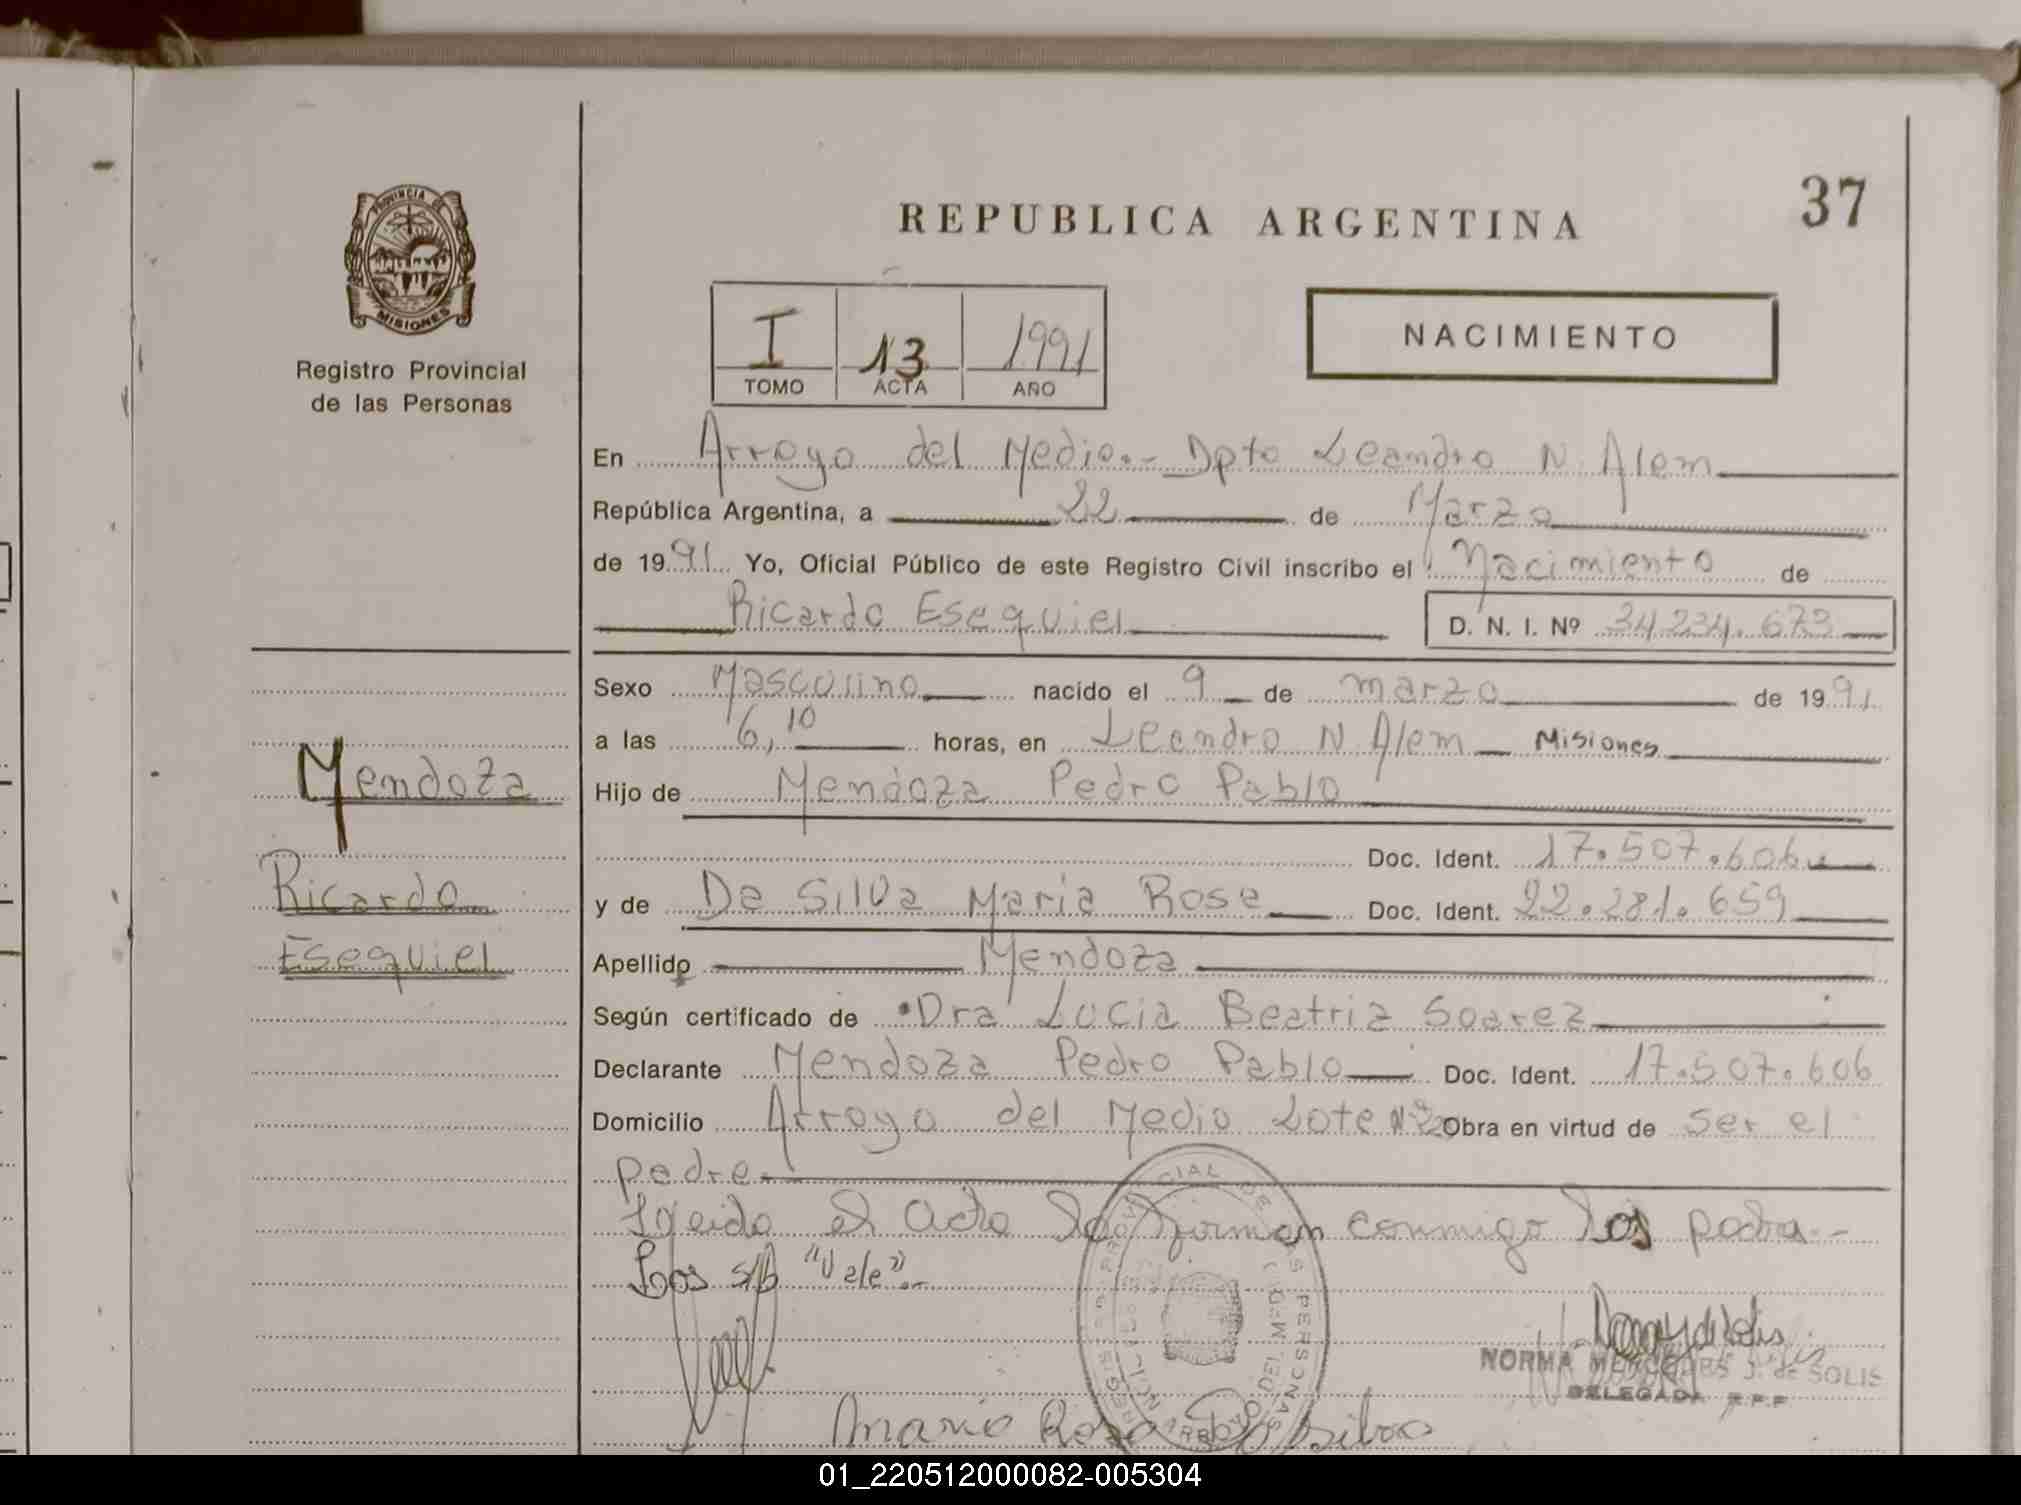 37
REPUBLICA ARGENTINA
PROVINCIA DE
MISIONES
Registro Provincial
de las Personas
I 13 1991
TOMO ACTA AÑO
NACIMIENTO
En Arroyo del Medio.- Dpto Leandro N. Alem
República Argentina, a 22 de Marzo
de 1991. Yo, Oficial Público de este Registro Civil inscribo el Nacimiento de
Ricardo Esequiel D. N. I. Nº 34.234.673
Sexo Masculino nacido el 9 de marzo de 1991.
a las 6,10 horas, en Leandro N Alem Misiones
Hijo de Mendoza Pedro Pablo
Doc. Ident. 17.507.606
y de Da Silva Maria Rosa Doc. Ident. 22.281.659
Apellido Mendoza
Según certificado de Dra Lucia Beatriz Soarez
Declarante Mendoza Pedro Pablo Doc. Ident. 17.507.606
Domicilio Arroyo del Medio Lote Nº Obra en virtud de ser el
padre
Leido el acta la firman conmigo los
Los s/b "Vale".-
Mendoza
Ricardo
Esequiel
NORMA J. de SOLIS
DELEGADA R.P.P.
Maria Rosa Da Silva
01_220512000082-005304